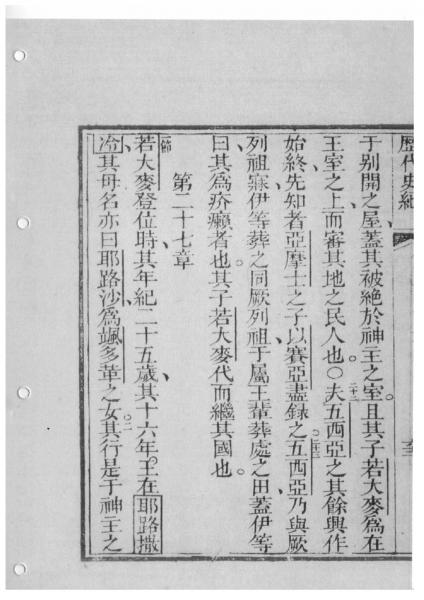 歷代史紀
于別開之屋蓋其被絕於神王之室且其子若大麥爲在
王室之上而審其地之民人也○二十二夫五西亞之其餘與作
始終先知者亞摩士之子以賽亞盡録之二十三五西亞乃與厥
列祖寐伊等葬之同厥列祖于屬王輩葬處之田蓋伊等
曰其爲疥癩者也其子若大麥代而繼其國也
第二十七章
一節若大麥登位時其年紀二十五歲其十六年王在耶路撒
冷其母名亦曰耶路沙爲颯多革之女二其行是于神王之